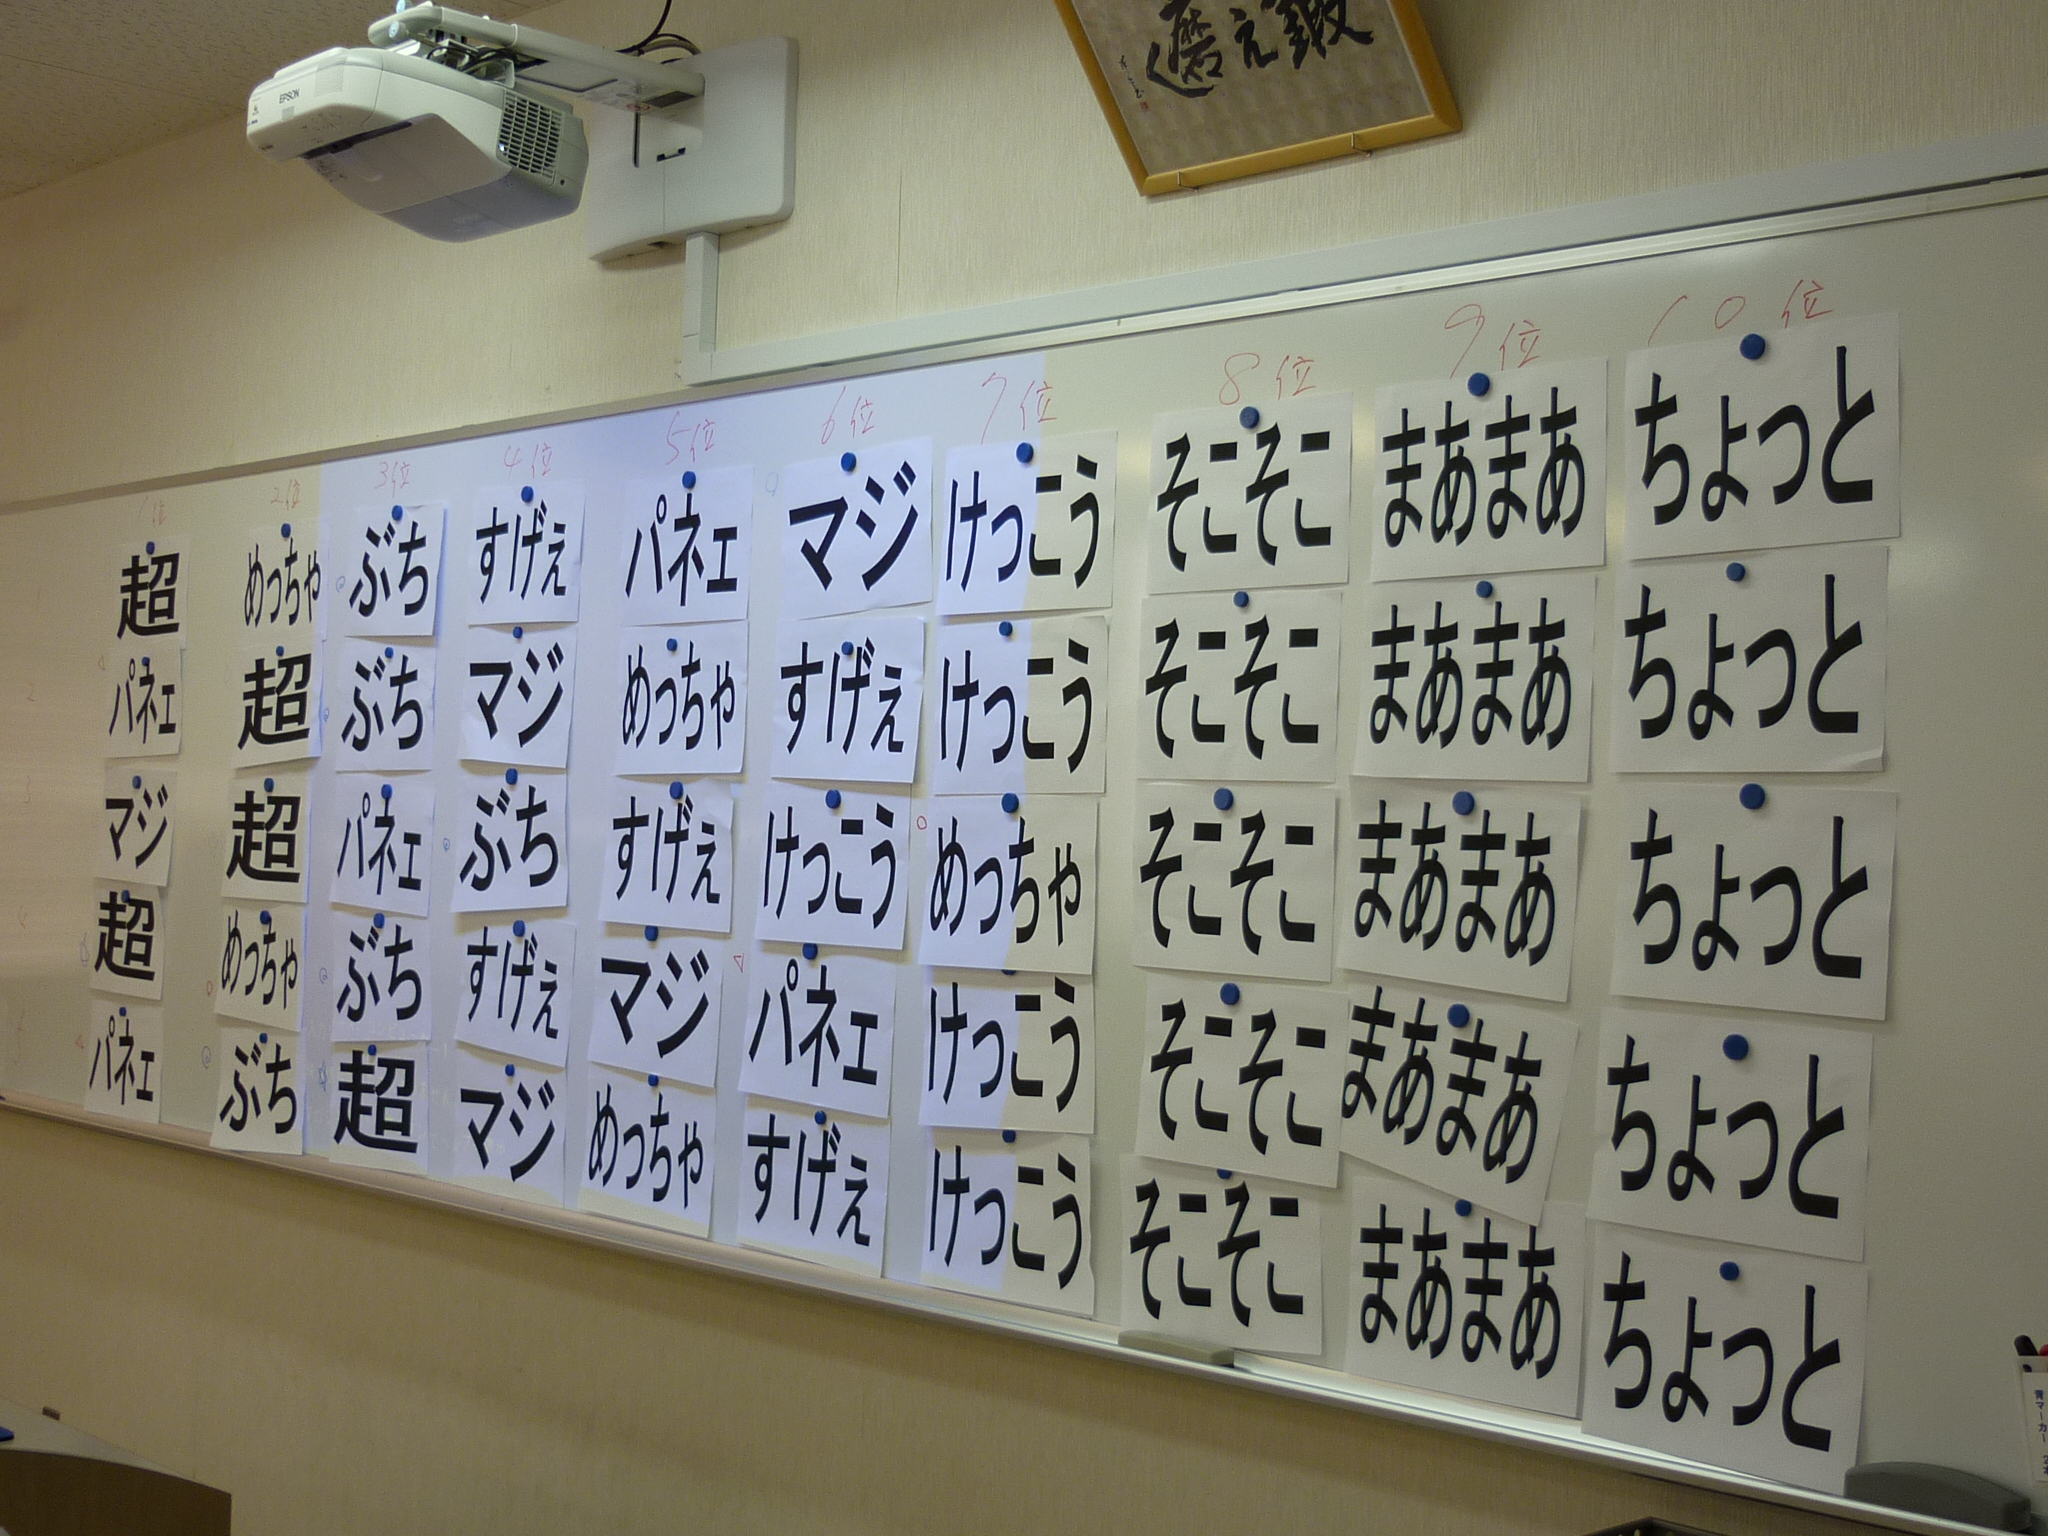 EPSON
鍛え磨く
1位 2位 3位 4位 5位 6位 7位 8位 9位 10位
超 めっちゃ ぶち すげぇ パネェ マジ けっこう そこそこ まあまあ ちょっと
パネェ 超 ぶち マジ めっちゃ すげぇ けっこう そこそこ まあまあ ちょっと
マジ 超 パネェ ぶち すげぇ けっこう めっちゃ そこそこ まあまあ ちょっと
超 めっちゃ ぶち すげぇ マジ パネェ けっこう そこそこ まあまあ ちょっと
パネェ ぶち 超 マジ めっちゃ すげぇ けっこう そこそこ まあまあ ちょっと
青マーカー 2本